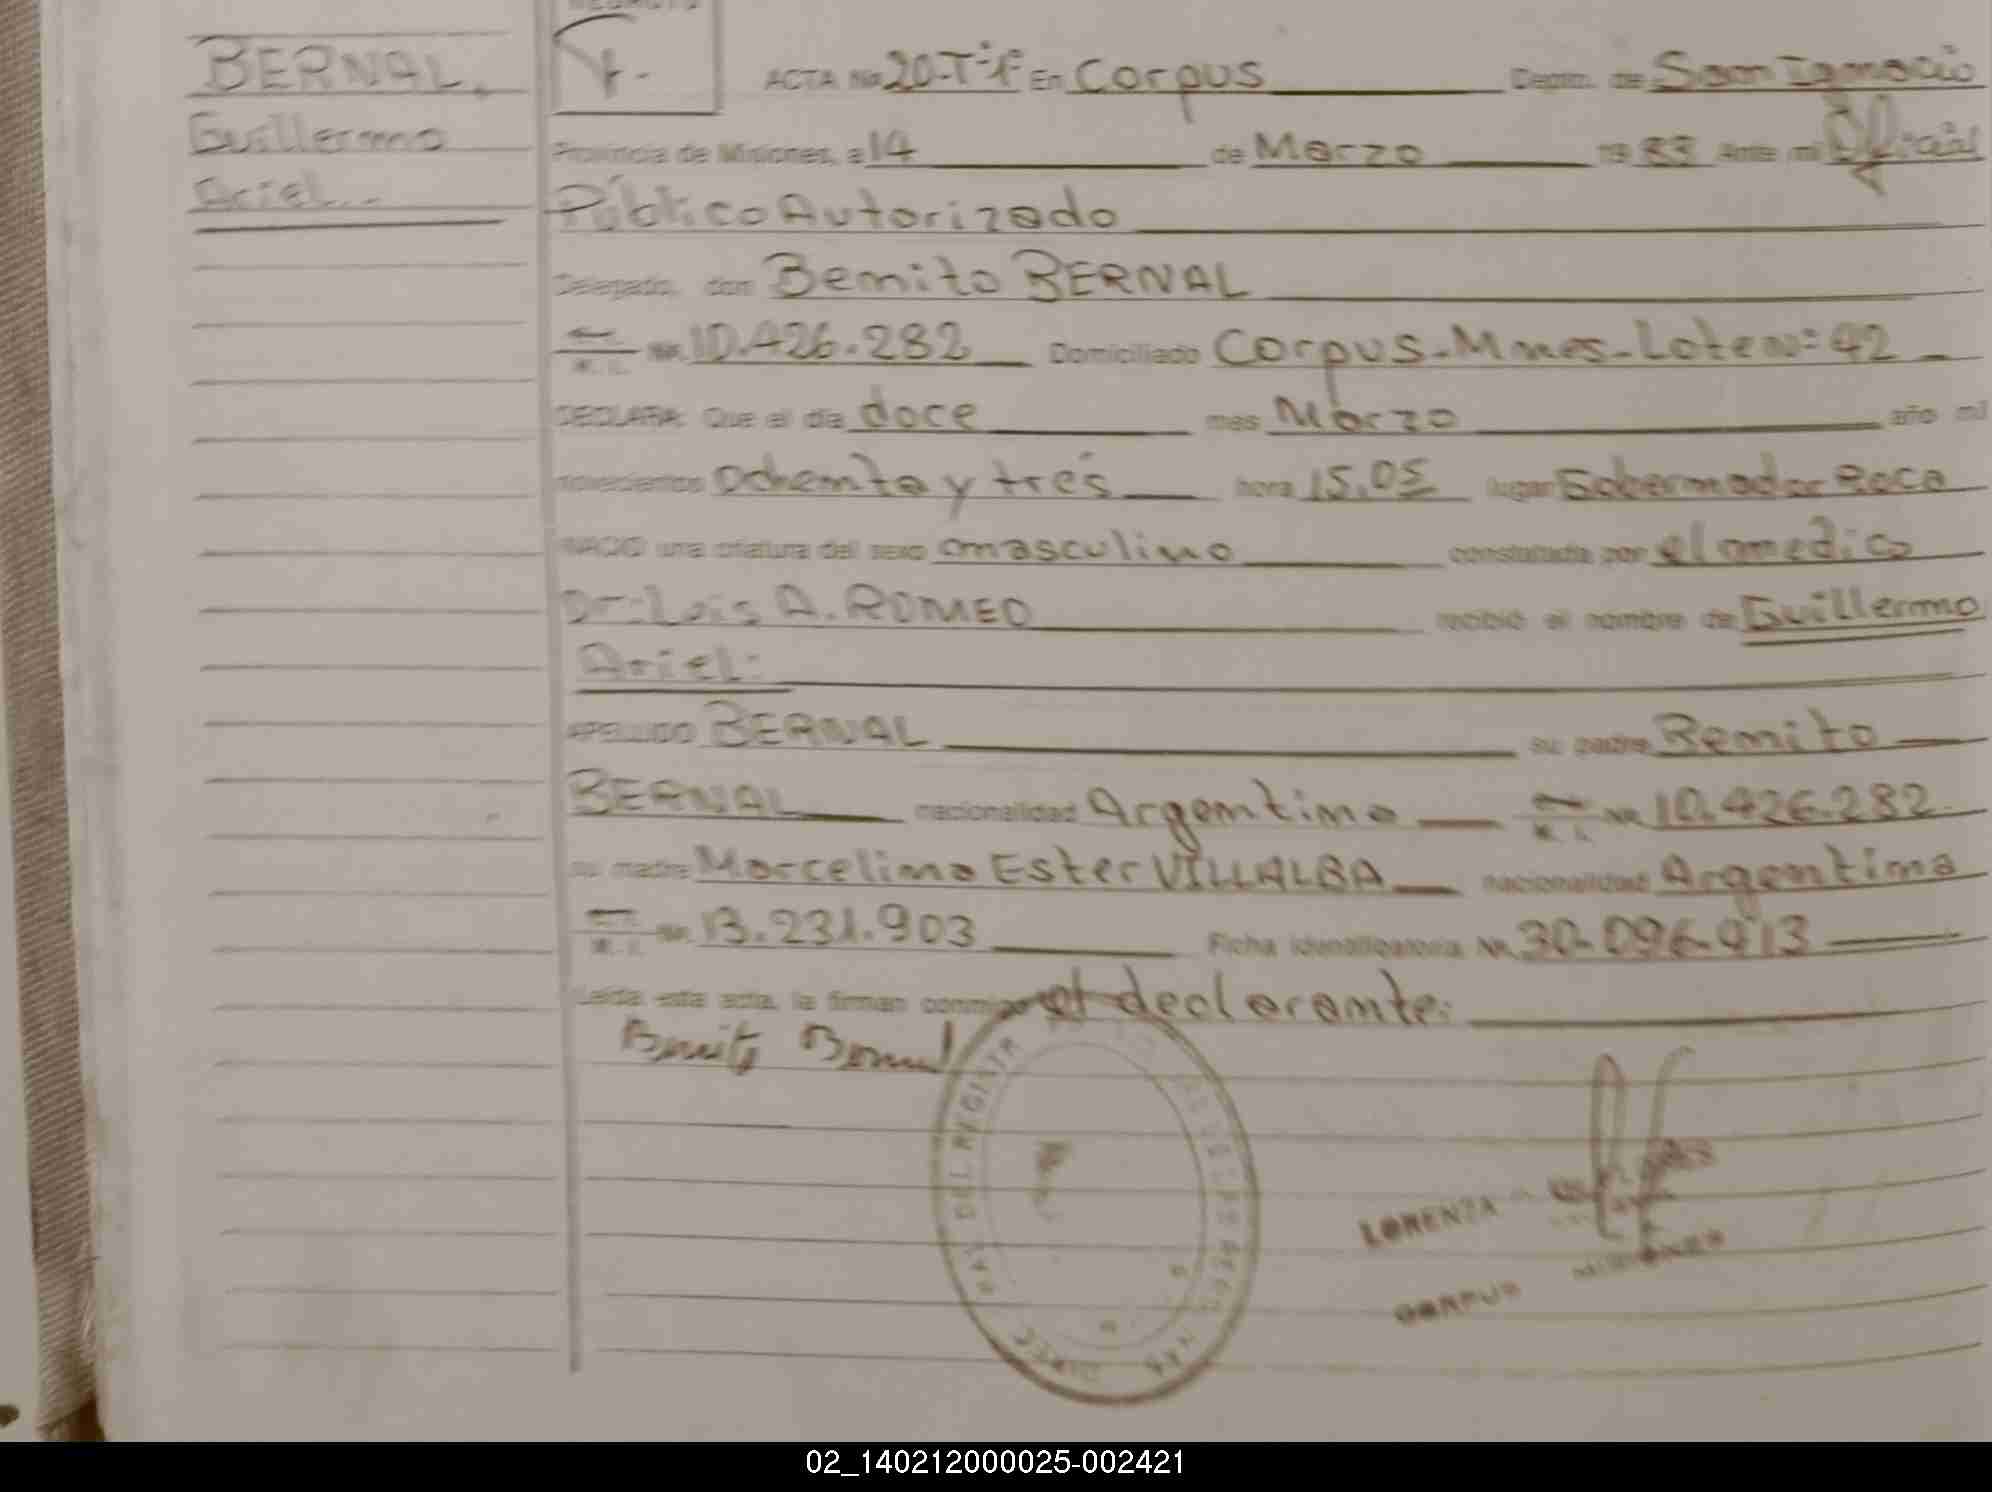 BERNAL.
Guillermo
Ariel..
ACTA No 20-Tº1º En Corpus Depto. de San Ignacio
Provincia de Misiones, a 14 de Marzo 1983 Ante mí Oficial
Público Autorizado
Delegado, don Benito BERNAL
M. I. Nº 10.426.282 Domiciliado Corpus-Mnes-Lote Nº: 42
DECLARA: Que el día doce mes Marzo año mil
novecientos ochenta y trés hora 15,05 lugar Gobernador Roca
NACIO una criatura del sexo masculino constatada por el medico
Dr: Luis A. ROMEO recibió el nombre de Guillermo
Ariel:
APELLIDO BERNAL su padre Benito
BERNAL nacionalidad Argentino M. I. Nº 10.426.282
su madre Marcelina Ester VILLALBA nacionalidad Argentina
M. I. Nº 13.231.903 Ficha identificatoria Nº 30-096-913
Leída esta acta, la firman conmigo el declarante:
Benito Bernal
DEL REGISTR
LORENZA
CORPUS MISIONES
02_140212000025-002421